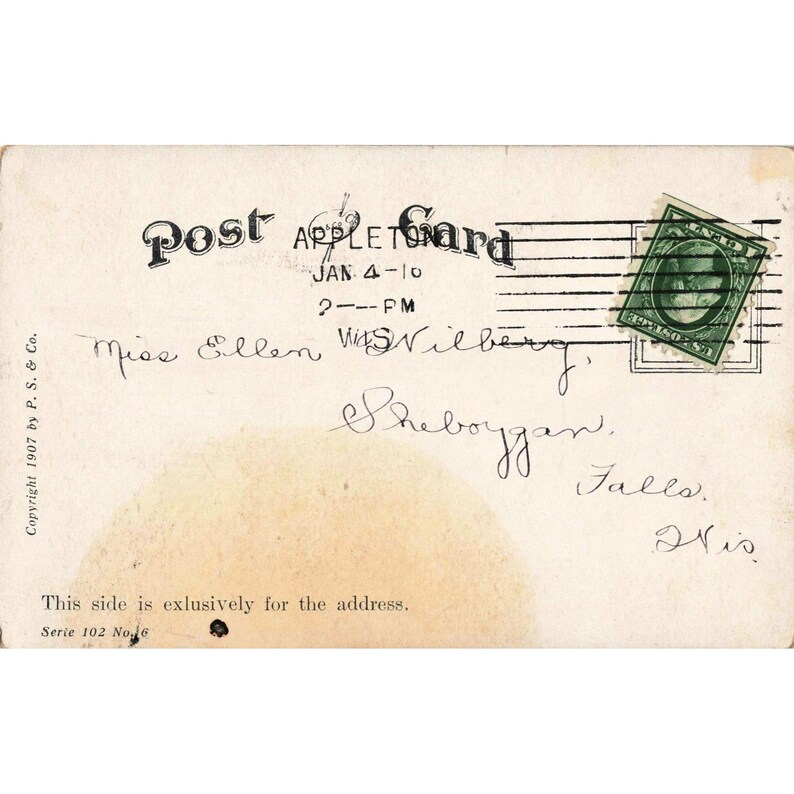 Post Card
APPLETON
JAN 4-10
2--PM
WIS
Miss Ellen Wilberg,
Sheboygan.
Falls.
Wis.
Copyright 1907 by P. S. & Co.
This side is exlusively for the address.
Serie 102 No. 6